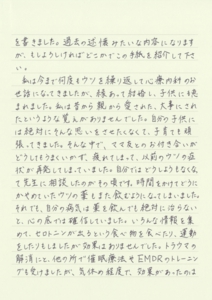 を書きました。過去の述懐みたいな内容になります
が、もしよろしければどこかでこの手紙を紹介して下
さい。
私は今まで何度もウソを繰り返して心療内科のお
世話になってきましたが、縁あって結婚し、子供にも恵
まれました。私は昔から親から愛された、大事にされ
たというような覚えがありませんでした。自分の子供に
は絶対にそんな思いをさせたくなくて、子育ても頑
張ってきました。そんな中で、ママ友とのお付き合いが
どうしてもうまくいかず、疲れてしまって、以前のウツの症
状が再発してしまいました。自分ではどうしようもなく
て先生に相談したのがその頃です。時間をかけてどうに
かやめていたウツの薬をまた飲むようになってしまいました。
それでも、自分の病気は薬を飲んでも絶対に治らない
と、心の底では確信していました。いろんな情報を集
めて、セロトニンが出るという食べ物を食べたり、運動
をしたりもしましたが効果はありませんでした。トラウマの
解消にと、他の所で催眠療法やEMDRのトレーニ
ングも受けましたが、気休め程度で、効果があったのは